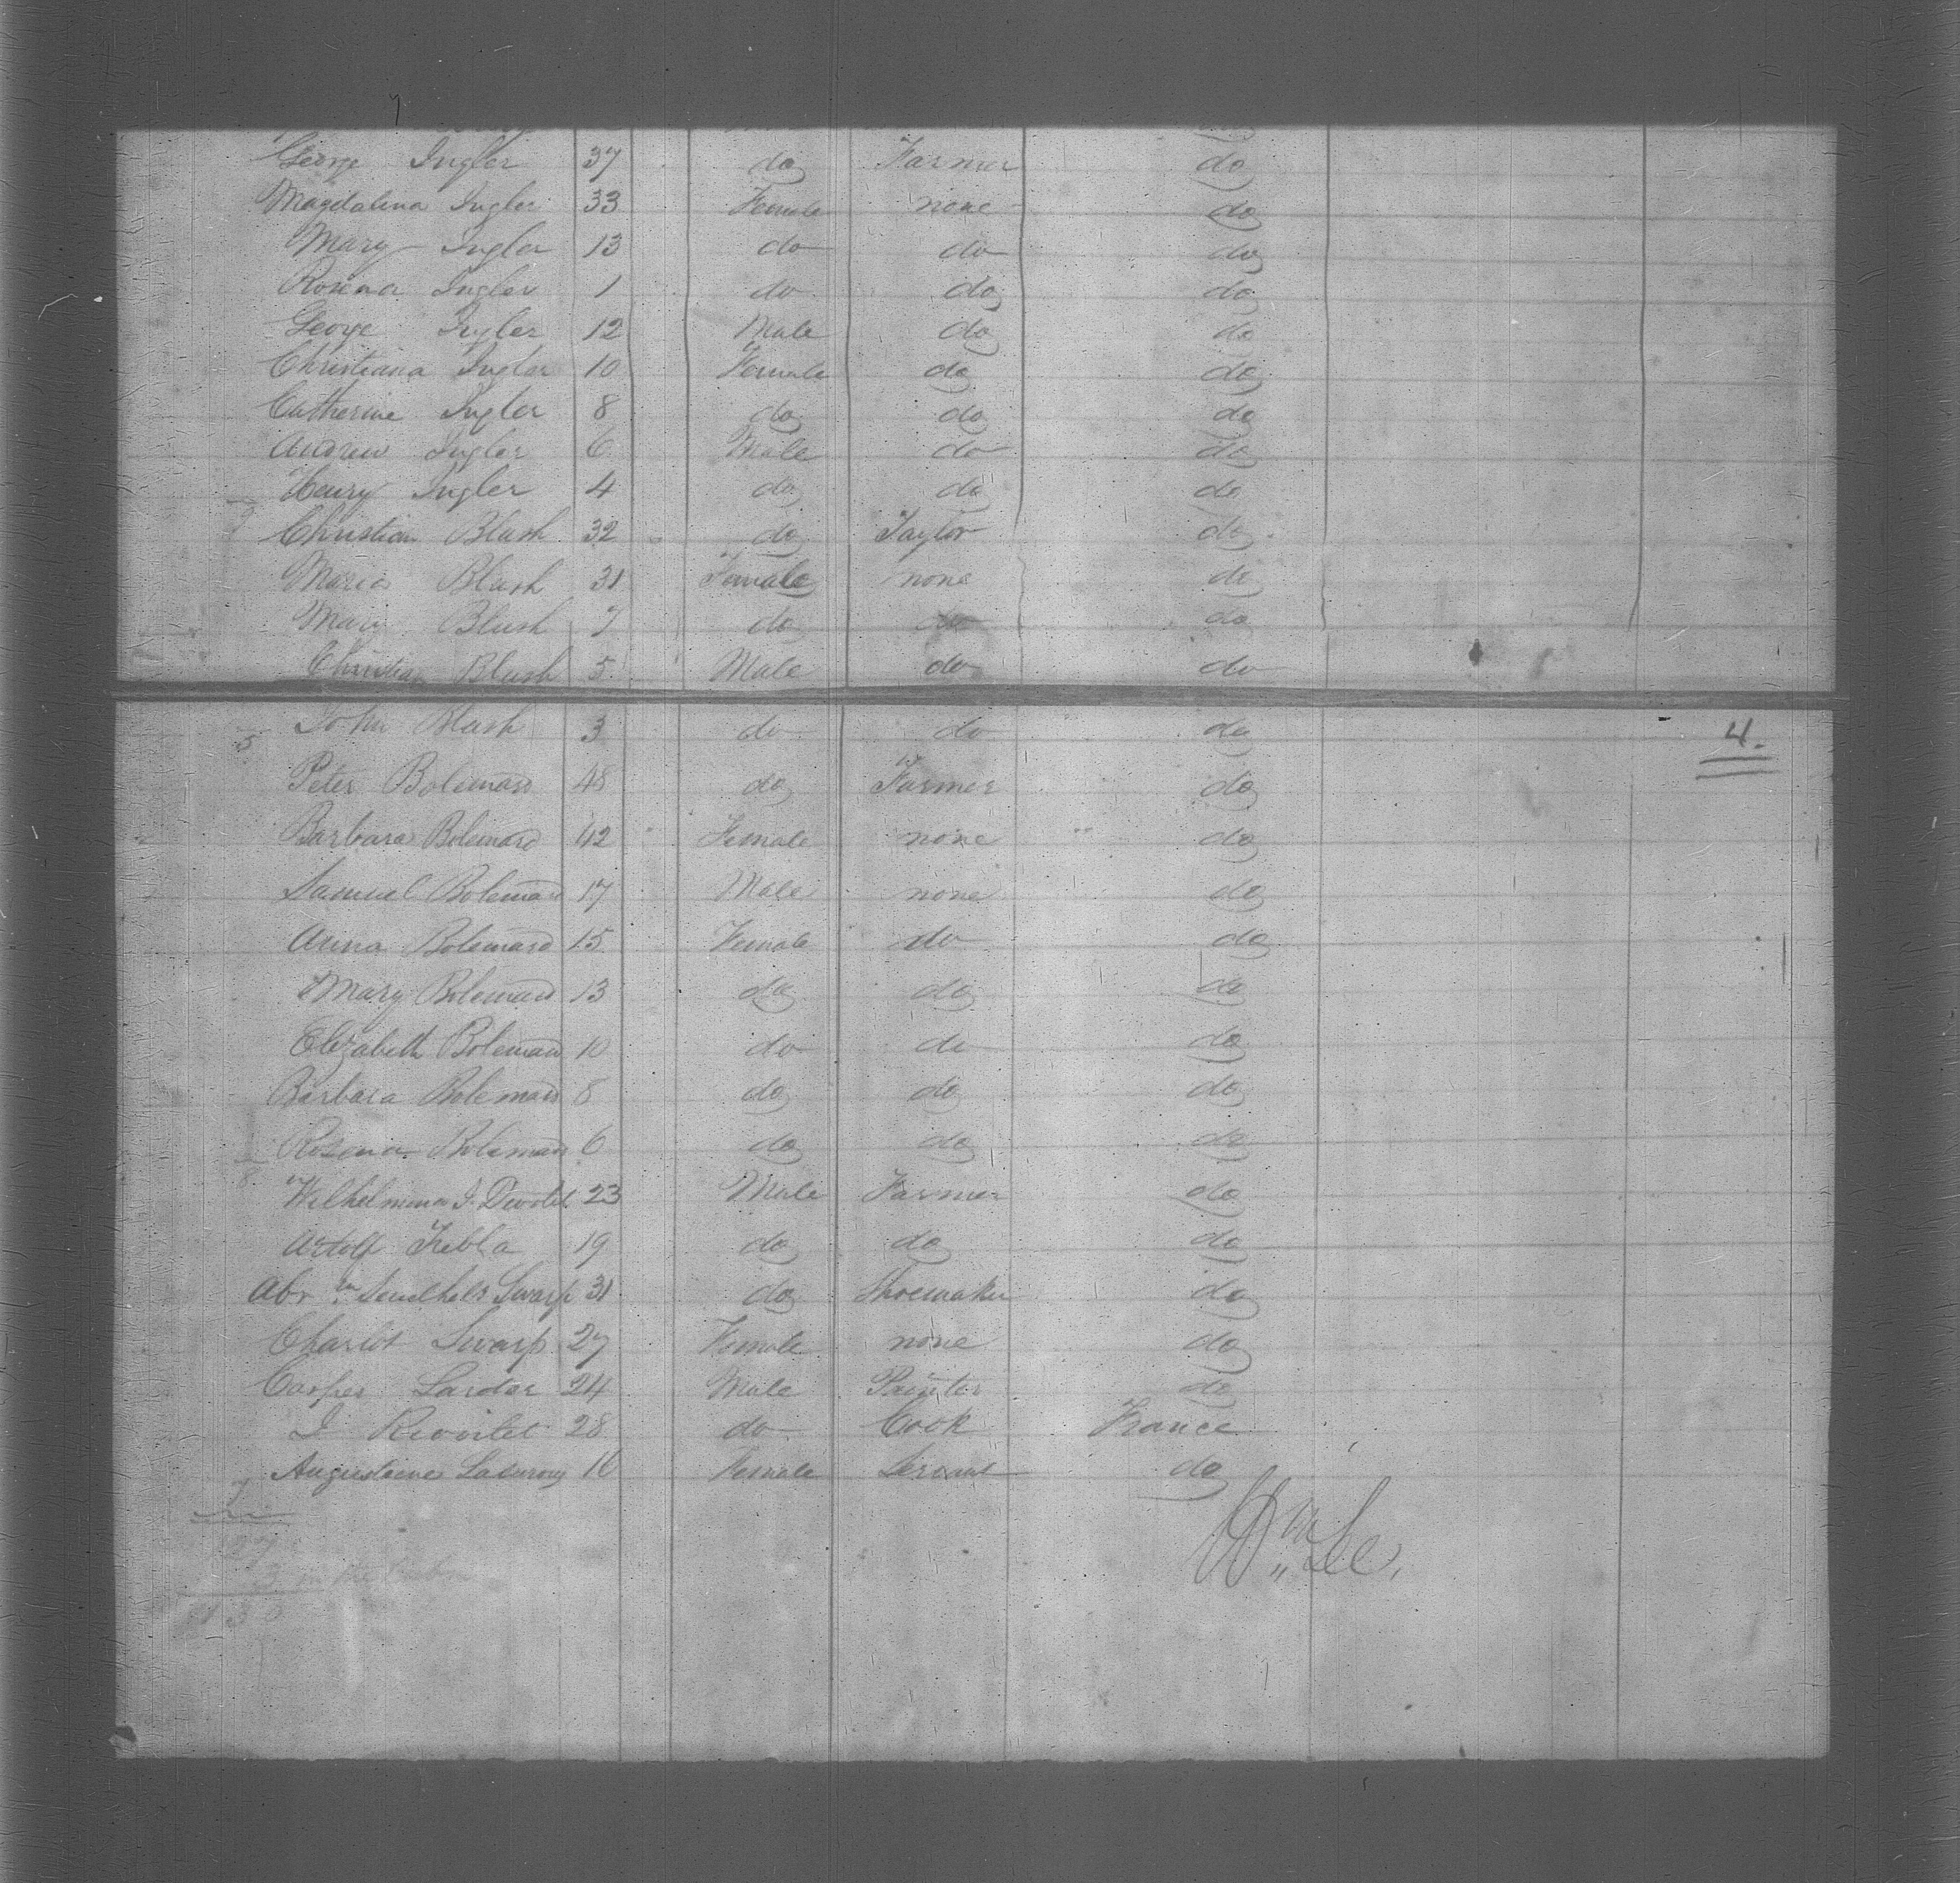 George Ingler 37 do Farmer do
Magdalena Ingler 33 Female none do
Mary Ingler 13 do do do
Rosina Ingler 1 do do do
George Ingler 12 Male do do
Christiana Ingler 10 Female do do
Catherine Ingler 8 do do do
Andrew Ingler 6 Male do do
Henry Ingler 4 do do do
Christian Blush 32 do Taylor do
Maria Blush 31 Female none do
Mary Blush 7 do do do
Christian Blush 5 Male do do
John Blush 3 do do do
4.
5
Peter Bolemand 48 do Farmer do
Barbara Bolemand 42 Female none do
Samuel Bolemand 17 Male none do
Anna Bolemand 15 Female do do
Mary Bolemand 13 do do do
Elizabeth Bolemand 10 do do do
Barbara Bolemand 8 do do do
Rosena Bolemand 6 do do do
8
Wilhelmena J. 23 Male Farmer do
Adolf 19 do do do
Abr Swarp 31 do Shoemaker do
Charlot Swarp 27 Female none do
Casper Lardor 24 Male Painter do
J 28 do Cook France
Augusteene 16 Female Servant do
7
127
3 in the Cabin
130
Wm Lee.